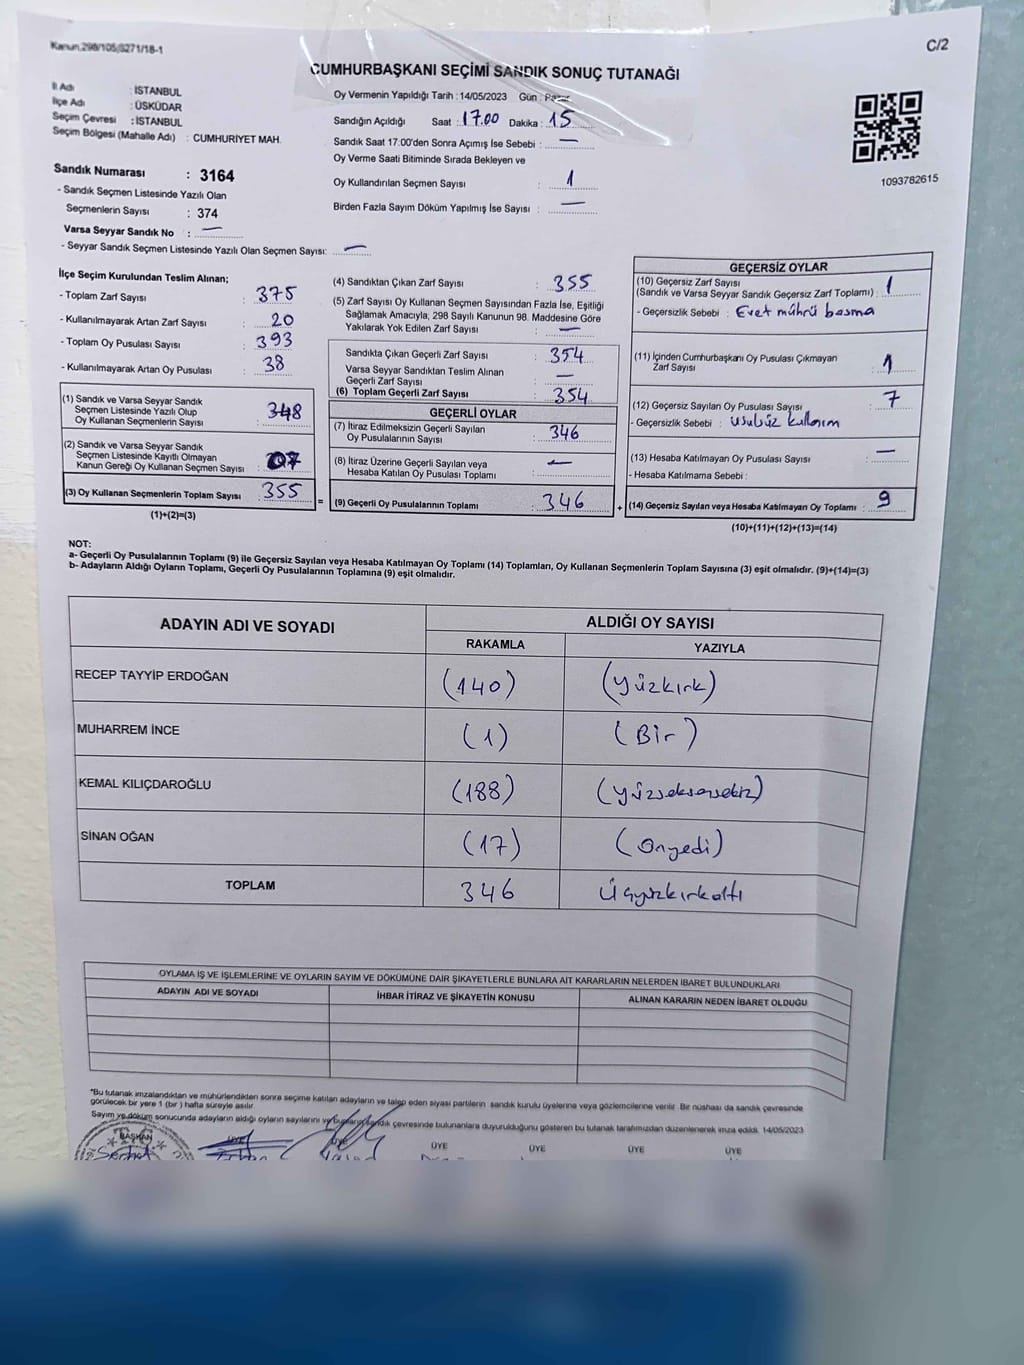 Kanun.298/105,6271/18-1
C/2
CUMHURBAŞKANI SEÇİMİ SANDIK SONUÇ TUTANAĞI
İl Adı : İSTANBUL
İlçe Adı : ÜSKÜDAR
Seçim Çevresi : İSTANBUL
Seçim Bölgesi (Mahalle Adı) : CUMHURİYET MAH.
Oy Vermenin Yapıldığı Tarih : 14/05/2023 Gün : Pazar
Sandığın Açıldığı Saat : 17.00 Dakika : 15
Sandık Saat 17:00'den Sonra Açımış İse Sebebi : —
Oy Verme Saati Bitiminde Sırada Bekleyen ve
Oy Kullandırılan Seçmen Sayısı : 1
Birden Fazla Sayım Döküm Yapılmış İse Sayısı : —
1093782615
Sandık Numarası : 3164
- Sandık Seçmen Listesinde Yazılı Olan
Seçmenlerin Sayısı : 374
Varsa Seyyar Sandık No : —
- Seyyar Sandık Seçmen Listesinde Yazılı Olan Seçmen Sayısı: —
İlçe Seçim Kurulundan Teslim Alınan;
- Toplam Zarf Sayısı : 375
- Kullanılmayarak Artan Zarf Sayısı : 20
- Toplam Oy Pusulası Sayısı : 393
- Kullanılmayarak Artan Oy Pusulası : 38
(1) Sandık ve Varsa Seyyar Sandık
Seçmen Listesinde Yazılı Olup
Oy Kullanan Seçmenlerin Sayısı : 348
(2) Sandık ve Varsa Seyyar Sandık
Seçmen Listesinde Kayıtlı Olmayan
Kanun Gereği Oy Kullanan Seçmen Sayısı : 07
(3) Oy Kullanan Seçmenlerin Toplam Sayısı : 355
(1)+(2)=(3)
(4) Sandıktan Çıkan Zarf Sayısı : 355
(5) Zarf Sayısı Oy Kullanan Seçmen Sayısından Fazla İse, Eşitliği
Sağlamak Amacıyla, 298 Sayılı Kanunun 98. Maddesine Göre
Yakılarak Yok Edilen Zarf Sayısı : —
Sandıkta Çıkan Geçerli Zarf Sayısı : 354
Varsa Seyyar Sandıktan Teslim Alınan
Geçerli Zarf Sayısı : —
(6) Toplam Geçerli Zarf Sayısı : 354
GEÇERLİ OYLAR
(7) İtiraz Edilmeksizin Geçerli Sayılan
Oy Pusulalarının Sayısı : 346
(8) İtiraz Üzerine Geçerli Sayılan veya
Hesaba Katılan Oy Pusulası Toplamı : —
= (9) Geçerli Oy Pusulalarının Toplamı : 346
GEÇERSİZ OYLAR
(10) Geçersiz Zarf Sayısı
(Sandık ve Varsa Seyyar Sandık Geçersiz Zarf Toplamı) : 1
- Geçersizlik Sebebi : Evet mührü basma
(11) İçinden Cumhurbaşkanı Oy Pusulası Çıkmayan
Zarf Sayısı : 1
(12) Geçersiz Sayılan Oy Pusulası Sayısı : 7
- Geçersizlik Sebebi : usulsüz kullanım
(13) Hesaba Katılmayan Oy Pusulası Sayısı : —
- Hesaba Katılmama Sebebi :
+ (14) Geçersiz Sayılan veya Hesaba Katılmayan Oy Toplamı : 9
(10)+(11)+(12)+(13)=(14)
NOT:
a- Geçerli Oy Pusulalarının Toplamı (9) ile Geçersiz Sayılan veya Hesaba Katılmayan Oy Toplamı (14) Toplamları, Oy Kullanan Seçmenlerin Toplam Sayısına (3) eşit olmalıdır. (9)+(14)=(3)
b- Adayların Aldığı Oyların Toplamı, Geçerli Oy Pusulalarının Toplamına (9) eşit olmalıdır.
ADAYIN ADI VE SOYADI
ALDIĞI OY SAYISI
RAKAMLA YAZIYLA
RECEP TAYYİP ERDOĞAN (140) (Yüzkırk)
MUHARREM İNCE (1) (Bir)
KEMAL KILIÇDAROĞLU (188) (Yüzseksensekiz)
SİNAN OĞAN (17) (Onyedi)
TOPLAM 346 Üçyüzkırkaltı
OYLAMA İŞ VE İŞLEMLERİNE VE OYLARIN SAYIM VE DÖKÜMÜNE DAİR ŞİKAYETLERLE BUNLARA AİT KARARLARIN NELERDEN İBARET BULUNDUKLARI
ADAYIN ADI VE SOYADI İHBAR İTİRAZ VE ŞİKAYETİN KONUSU ALINAN KARARIN NEDEN İBARET OLDUĞU
*Bu tutanak imzalandıktan ve mühürlendikten sonra seçime katılan adayların ve talep eden siyasi partilerin sandık kurulu üyelerine veya gözlemcilerine verilir. Bir nüshası da sandık çevresinde
görülecek bir yere 1 (bir) hafta süreyle asılır.
Sayım ve döküm sonucunda adayların aldığı oyların sayılarını ve bunların sandık çevresinde bulunanlara duyurulduğunu gösteren bu tutanak tarafımızdan düzenlenerek imza edildi. 14/05/2023
BAŞKAN ÜYE ÜYE ÜYE ÜYE ÜYE ÜYE
Serhat